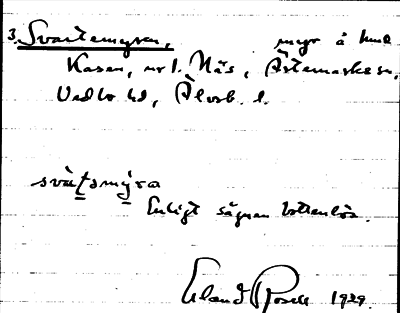 3. Svartemyren, myr å hmd
Kasen, nr 1. Näs, Östemarks sn,
Vedbo hd, Älvsb. l.
svätsmýra
Enligt sägnen bottenlös.
Erland Rosell 1929.